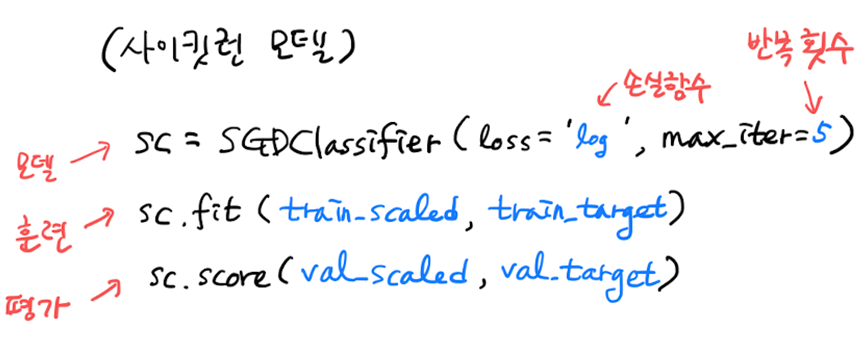 (사이킷런 모델)
반복 횟수
손실함수
모델 → sc = SGDClassifier (loss = 'log', max_iter=5)
훈련 → sc.fit (train_scaled, train_target)
평가 → sc.score (val_scaled, val_target)